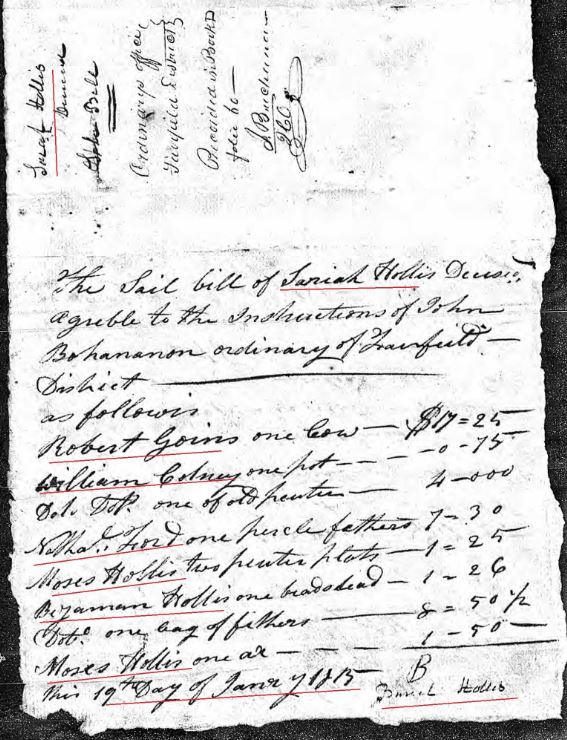 Hollis
Deceased
Sale Bill
Ordinarys office
Fairfield District
Recorded in Book
folio 60
J Buchanan
The Sail bill of Sariah Hollis Decsd
agreble to the Instructions of John
Bohananon ordinary of Fairfield
District
as followis
Robert Goins one Cow — $17=25
William Colney one pot — — — 0-75
Do. Do. one of old peuter — 4-000
Natha. Ford one percle fethers 7-30
Moses Hollis two peuter plats — 1=25
Bejaman Hollis one beadsdead — 1-26
Do. one bag of fithers — 8=50 1/2
Moses Hollis one ax — — — 1-50
this 19th Day of Janr y 1815
B
Hollis